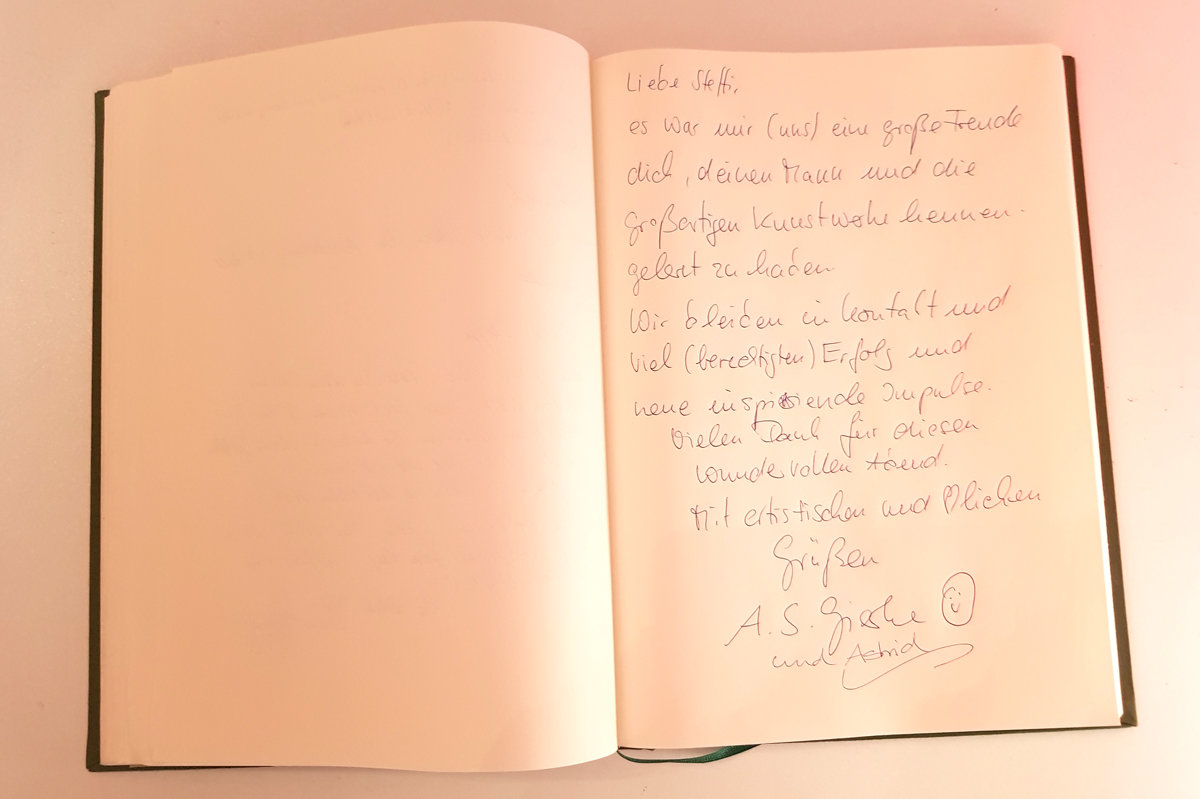 Liebe Steffi,
es war mir (uns) eine große Freude
dich, deinen Mann und die
großartigen Kunstwerke kennen-
gelernt zu haben.
Wir bleiben in Kontakt und
viel (berechtigten) Erfolg und
neue inspirierende Impulse.
Vielen Dank für diesen
wundervollen Abend.
Mit artistischen und ♡lichen
Grüßen
A. S.
und Astrid